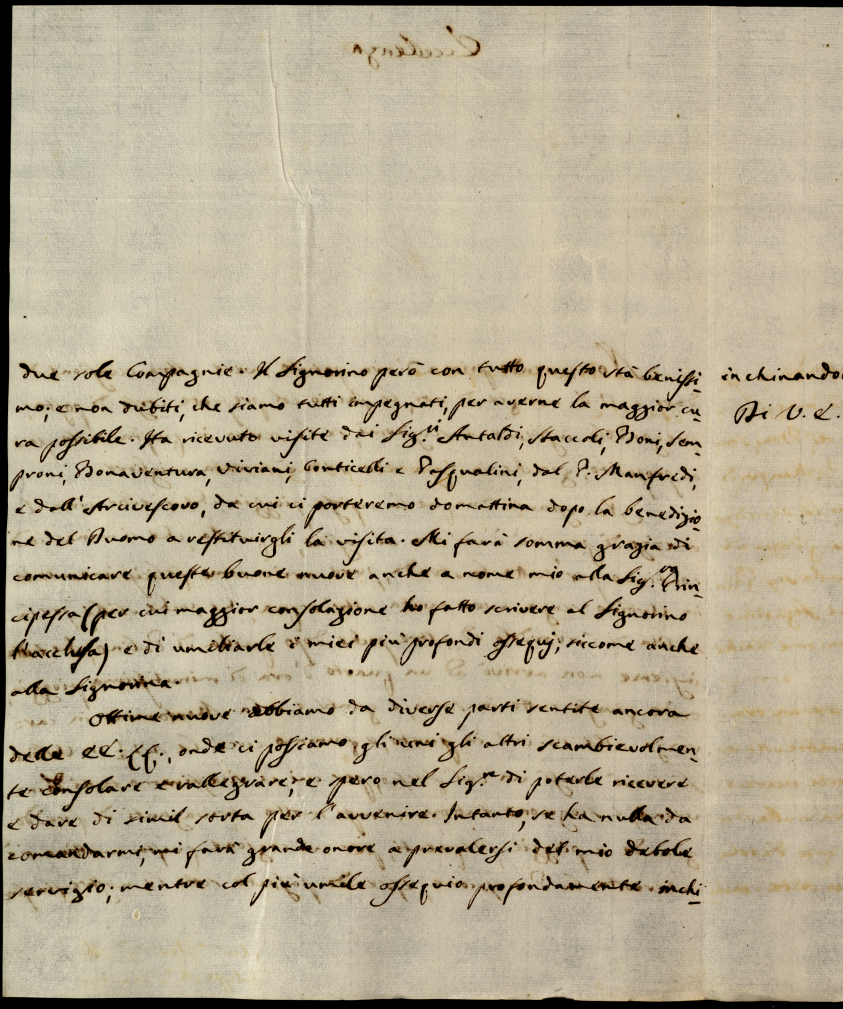 due sole Compagnie. Il Signorino però con tutto questo stà benissi-
mo; e non dubiti, che siamo tutti impegnati, per averne la maggior cu-
ra possibile. Ha ricevuto visite dai Sig.ri Antaldi, Staccoli, Boni, Sem-
proni, Bonaventura, Viviani, Conticelli e Pasqualini, dal P. Manfredi,
e dall'Arcivescovo, da cui ci porteremo domattina dopo la benedizio-
ne del Duomo a restituirgli la visita. Mi farà somma grazia di
comunicare queste buone nuove anche a nome mio alla Sig.ra Prin-
cipessa (per cui maggior consolazione ho fatto scrivere al Signorino
) e di umiliarle i miei più profondi ossequj, siccome anche
alla Signorina.
Ottime nuove abbiamo da diverse parti sentite ancora
delle EE. LL., onde ci possiamo gli uni gli altri scambievolmen-
te consolare e rallegrare; e spero nel Sig.re di poterle ricevere
e dare di simil sorta per l'avvenire. Intanto, se ha nulla da
comandarmi, mi farà grande onore a prevalersi del mio debole
servizio; mentre col più umile ossequio profondamente inchi-
inchinando
Di V. E.
Eccellenza